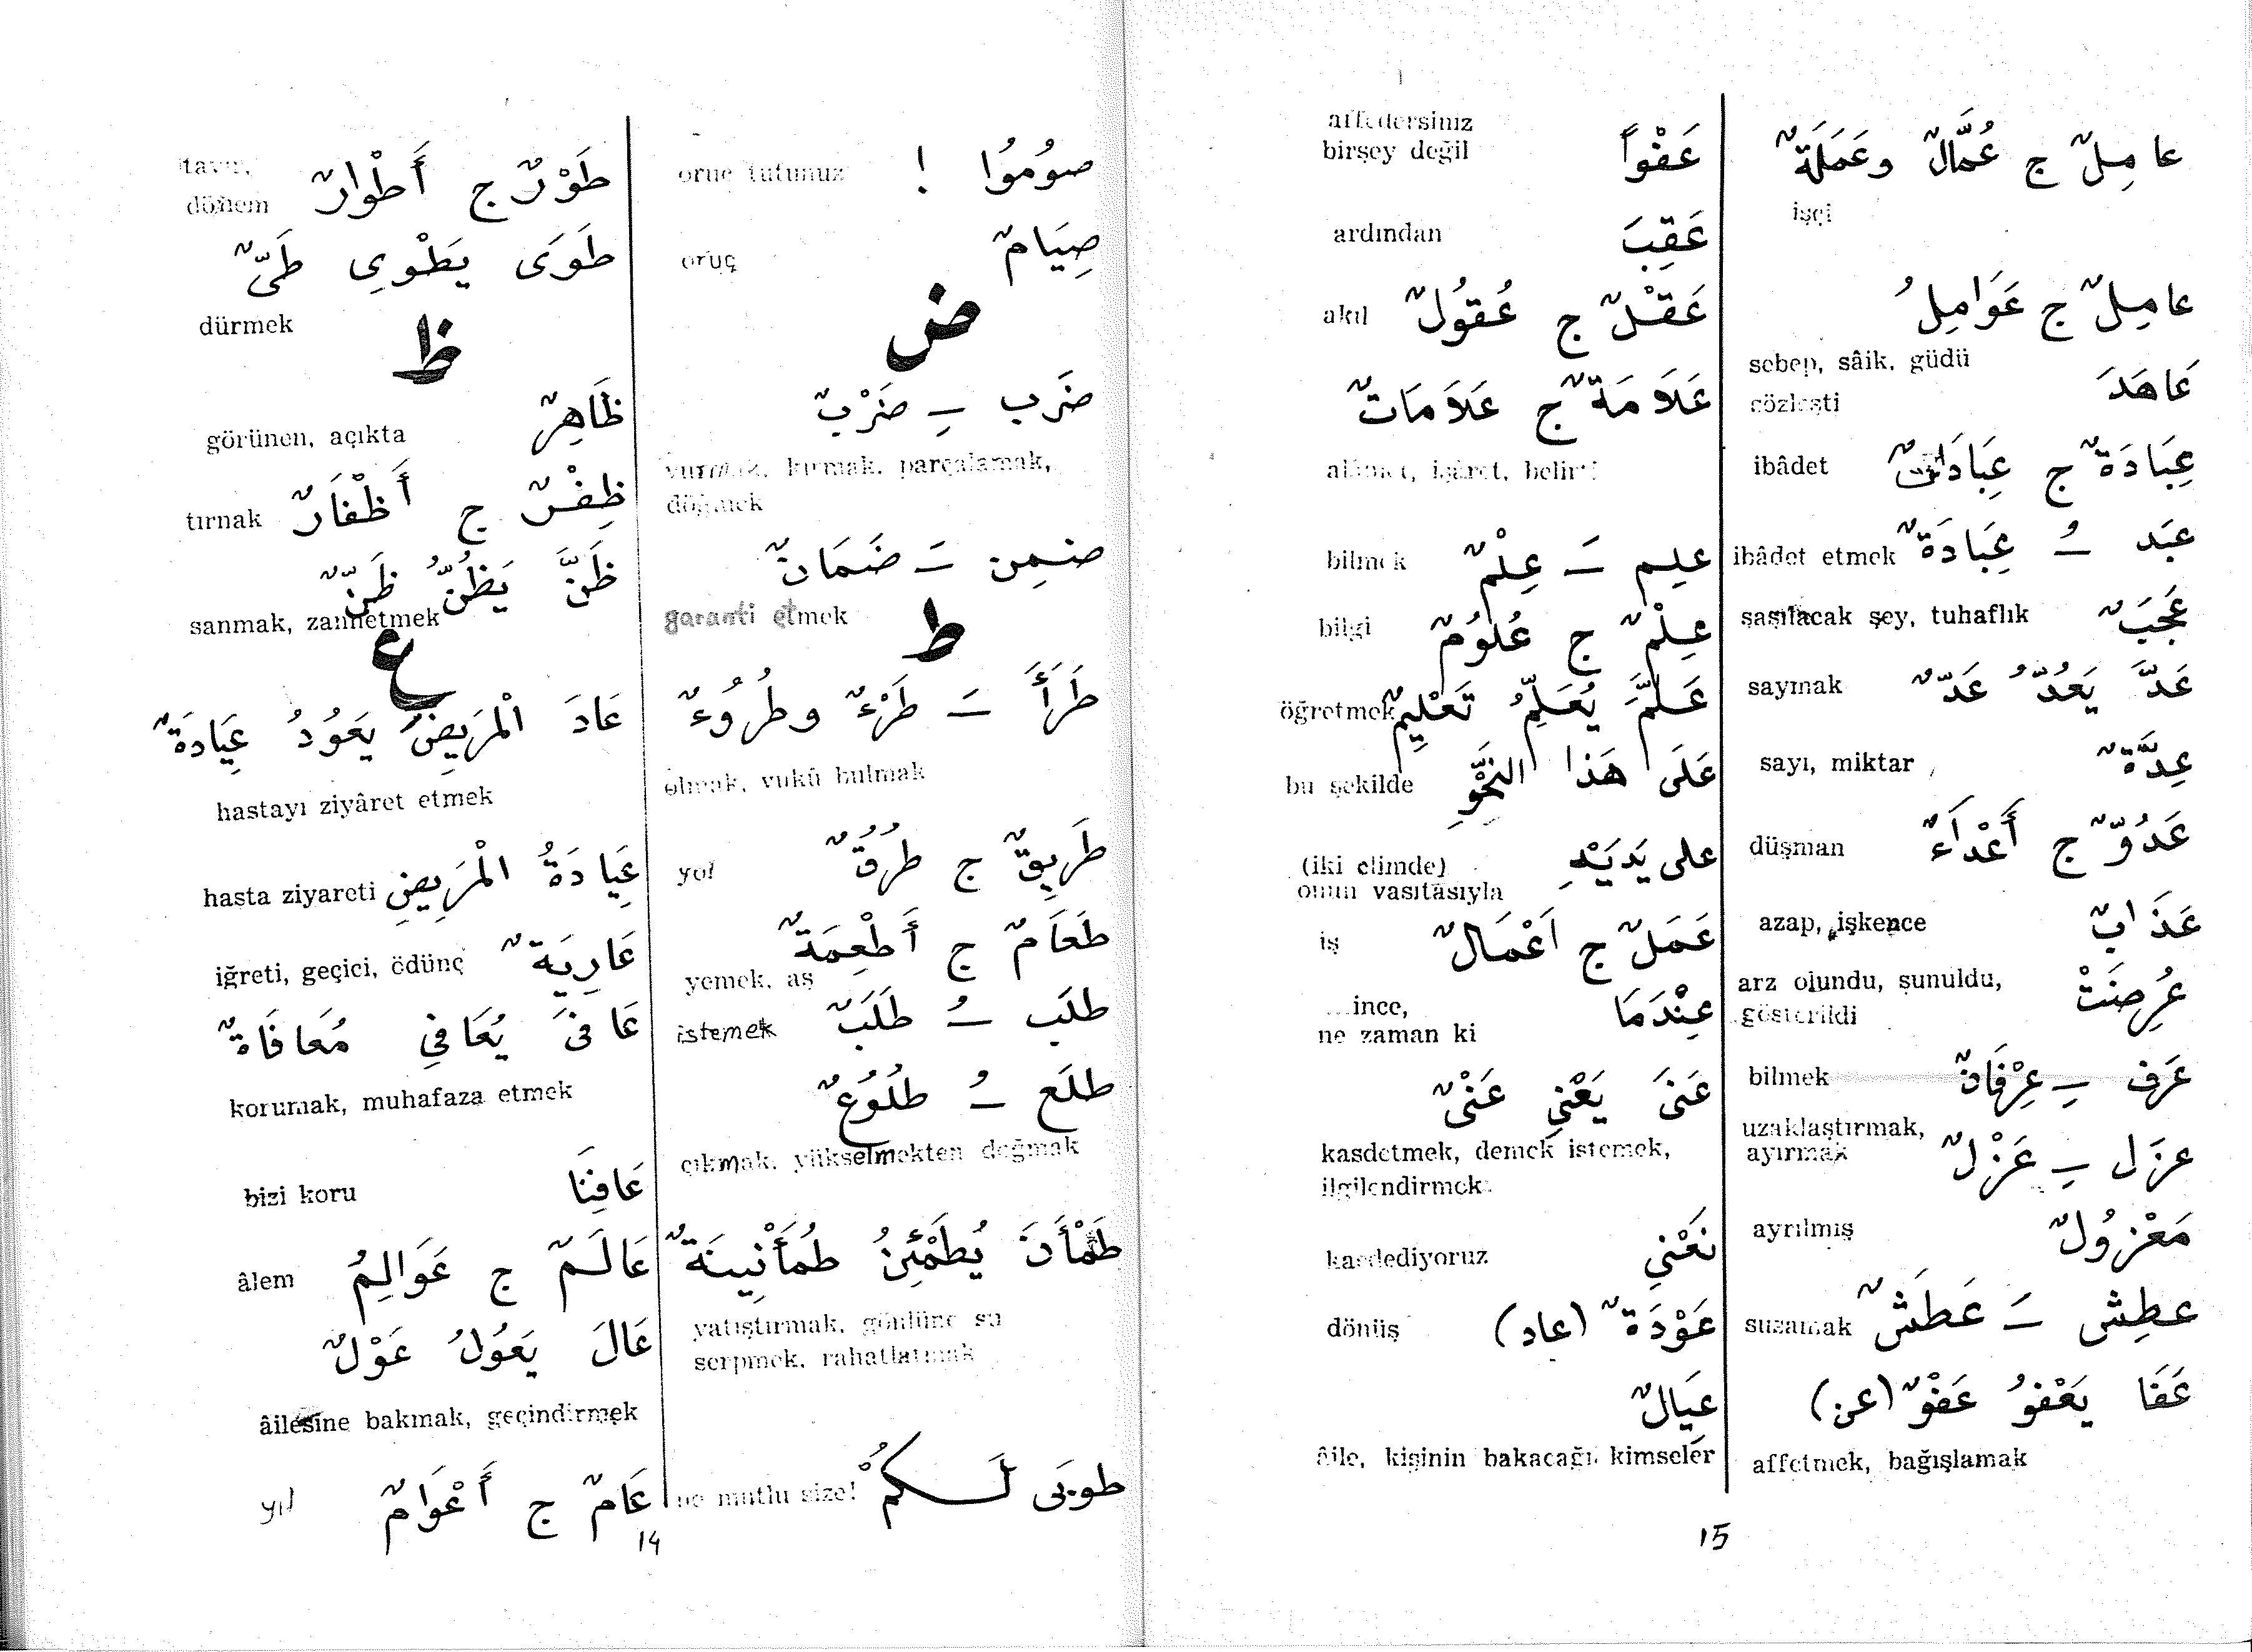 صُومُوا !
oruç tutunuz
صِيَامٌ
oruç
ض
ضَرَب ـِ ضَرْبٌ
vurmak, kırmak, parçalamak,
döğmek
ضمِن ـَ ضَمَانٌ
garanti etmek
ط
طَرَأَ ـَ طَرْءٌ وطُرُوءٌ
olmak, vukû bulmak
طَرِيقٌ ج طُرُقٌ
yol
طَعَامٌ ج أَطْعِمَةٌ
yemek, aş
طلَب ـُ طَلَبٌ
istemek
طلَع ـُ طُلُوعٌ
çıkmak, yükselmekten doğmak
طَمْأَنَ يُطَمْئِنُ طُمَأْنِينَةٌ
yatıştırmak, gönlüne su
serpmek, rahatlatmak
طوبَى لَكُمْ
ne mutlu size!
طَوْرٌ ج أَطْوَارٌ
tavır,
dönem
طَوَى يَطْوِي طَيٌّ
dürmek
ظ
ظَاهِرٌ
görünen, açıkta
ظِفْرٌ ج أَظْفَارٌ
tırnak
ظَنَّ يَظُنُّ ظَنٌّ
sanmak, zannetmek
ع
عَادَ الْمَرِيضَ يَعُودُ عِيَادَةٌ
hastayı ziyâret etmek
عِيَادَةُ الْمَرِيضِ
hasta ziyareti
عَارِيَةٌ
iğreti, geçici, ödünç
عَافَى يُعَافِي مُعَافَاةٌ
korumak, muhafaza etmek
عَافِنَا
bizi koru
عَالَمٌ ج عَوَالِمُ
âlem
عَالَ يَعُولُ عَوْلٌ
âilesine bakmak, geçindirmek
عَامٌ ج أَعْوَامٌ
yıl
14
عامِلٌ ج عُمَّالٌ وعَمَلَةٌ
işçi
عامِلٌ ج عَوَامِلُ
sebep, sâik, güdü
عَاهَدَ
sözleşti
عِبَادَةٌ ج عِبَادَاتٌ
ibâdet
عبَد ـُ عِبَادَةٌ
ibâdet etmek
عَجَبٌ
şaşılacak şey, tuhaflık
عَدَّ يَعُدُّ عَدٌّ
saymak
عِدَّةٌ
sayı, miktar
عَدُوٌّ ج أَعْدَاءٌ
düşman
عَذَابٌ
azap, işkence
عُرِضَتْ
arz olundu, sunuldu,
gösterildi
عرَف ـِ عِرْفَانٌ
bilmek
عزَل ـِ عَزْلٌ
uzaklaştırmak,
ayırmak
مَعْزُولٌ
ayrılmış
عطِش ـَ عَطَشٌ
susamak
عَفَا يَعْفُو عَفْوٌ (عن)
affetmek, bağışlamak
عَفْواً
affedersiniz
birşey değil
عَقِبَ
ardından
عَقْلٌ ج عُقُولٌ
akıl
عَلَامَةٌ ج عَلَامَاتٌ
alâmet, işâret, belirti
علِم ـَ عِلْمٌ
bilmek
عِلْمٌ ج عُلُومٌ
bilgi
عَلَّمَ يُعَلِّمُ تَعْلِيمٌ
öğretmek
عَلَى هَذَا النَّحْوِ
bu şekilde
على يَدَيْهِ
(iki elimde)
onun vasıtâsıyla
عَمَلٌ ج اَعْمَالٌ
iş
عِنْدَمَا
...ince,
ne zaman ki
عَنَى يَعْنِي عَنْىٌ
kasdetmek, demek istemek,
ilgilendirmek
نَعْنِي
kasdediyoruz
عَوْدَةٌ (عاد)
dönüş
عِيَالٌ
âile, kişinin bakacağı kimseler
15